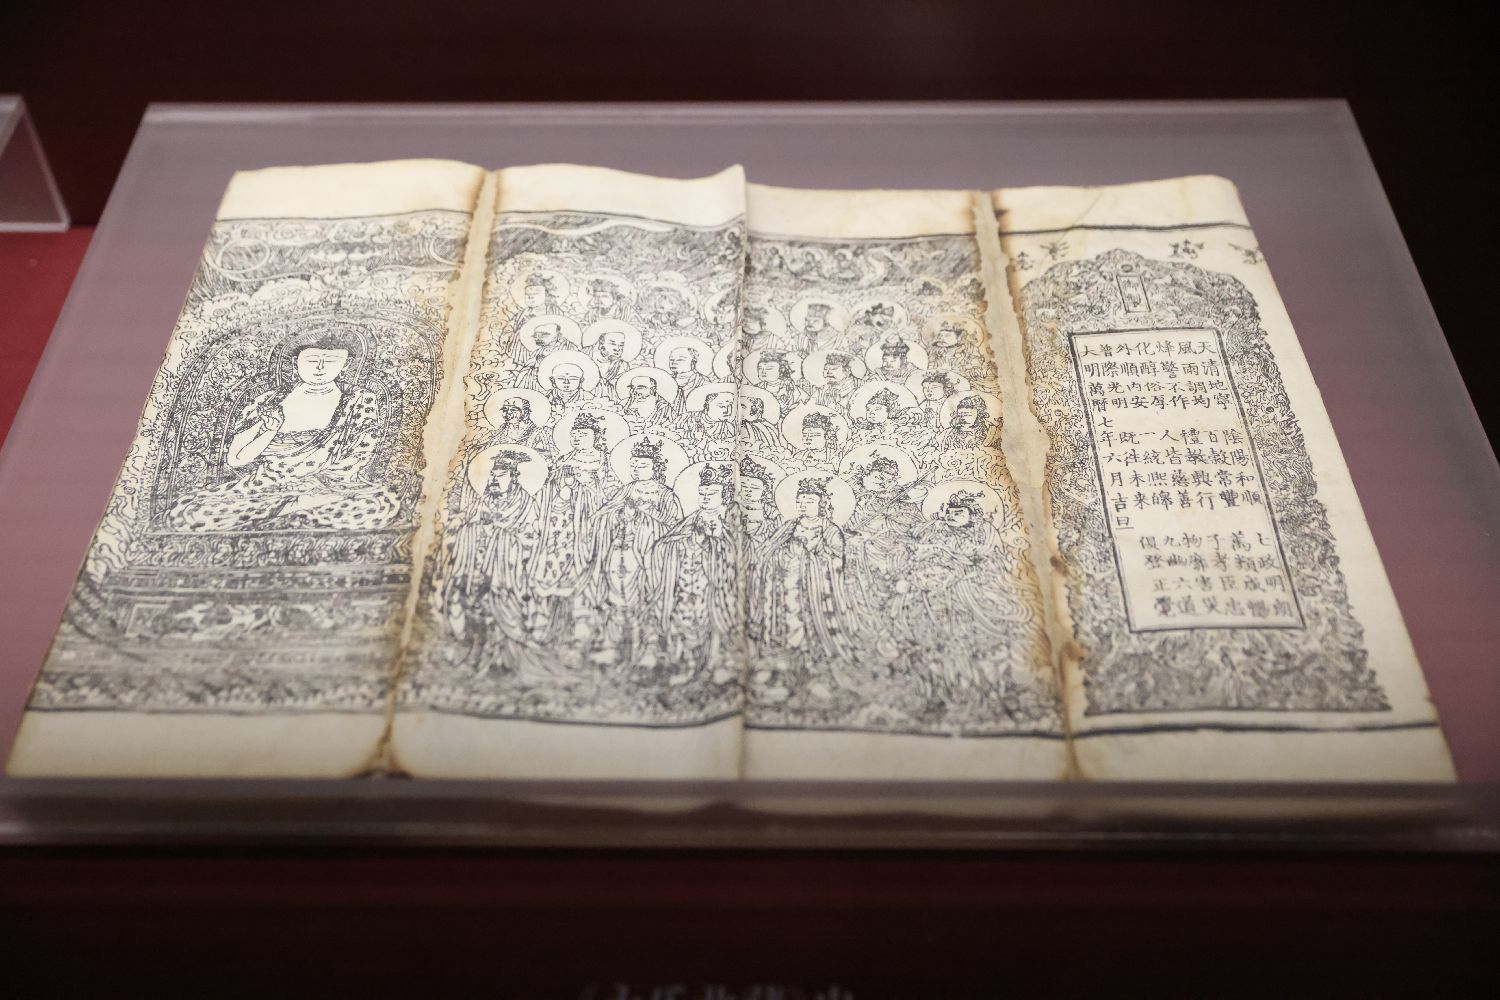 御製
天清地寧 陰陽和順 七政明朗
風雨調均 百穀常豐 萬類咸暢
烽警不作 禮教興行 子孝臣忠
化醇俗厚 人皆慈善 物靡害災
外順內安 一統熙皞 九幽六道
普際光明 既往未來 俱登正覺
大明萬曆七年六月吉旦